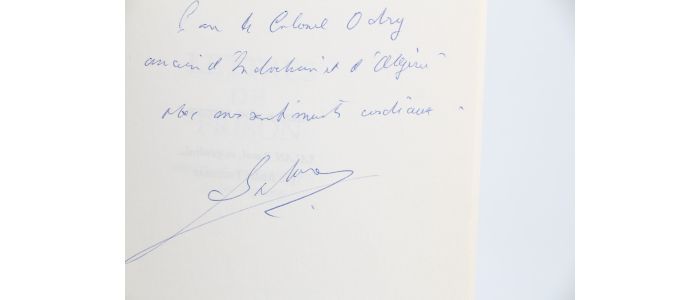 Pour le Colonel Odry
ancien d'Indochine et d'Algérie
avec mes sentiments cordiaux.